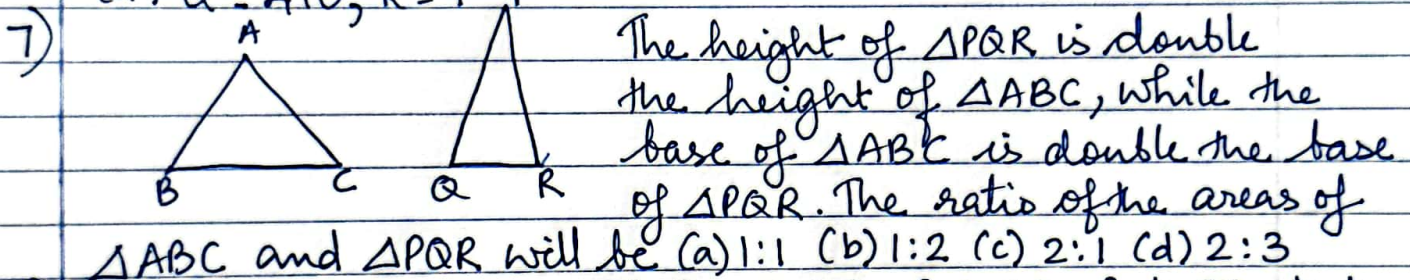 7)
A
B C Q R
The height of △PQR is double
the height of △ABC, while the
base of △ABC is double the base
of △PQR. The ratio of the areas of
△ABC and △PQR will be (a) 1:1 (b) 1:2 (c) 2:1 (d) 2:3